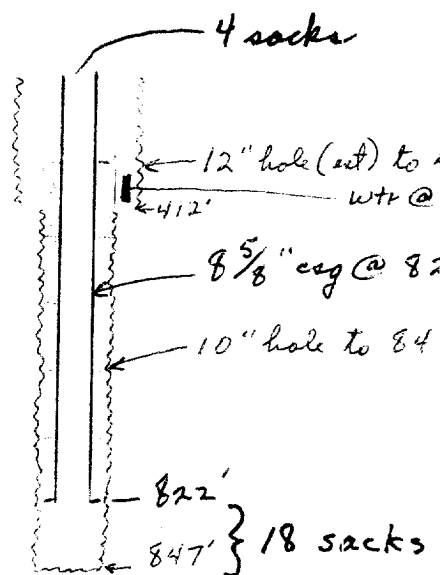 4 socks
12" hole (est) to
wtr @
412'
8 5/8" csg @ 82
10" hole to 84
822'
847'
18 sacks